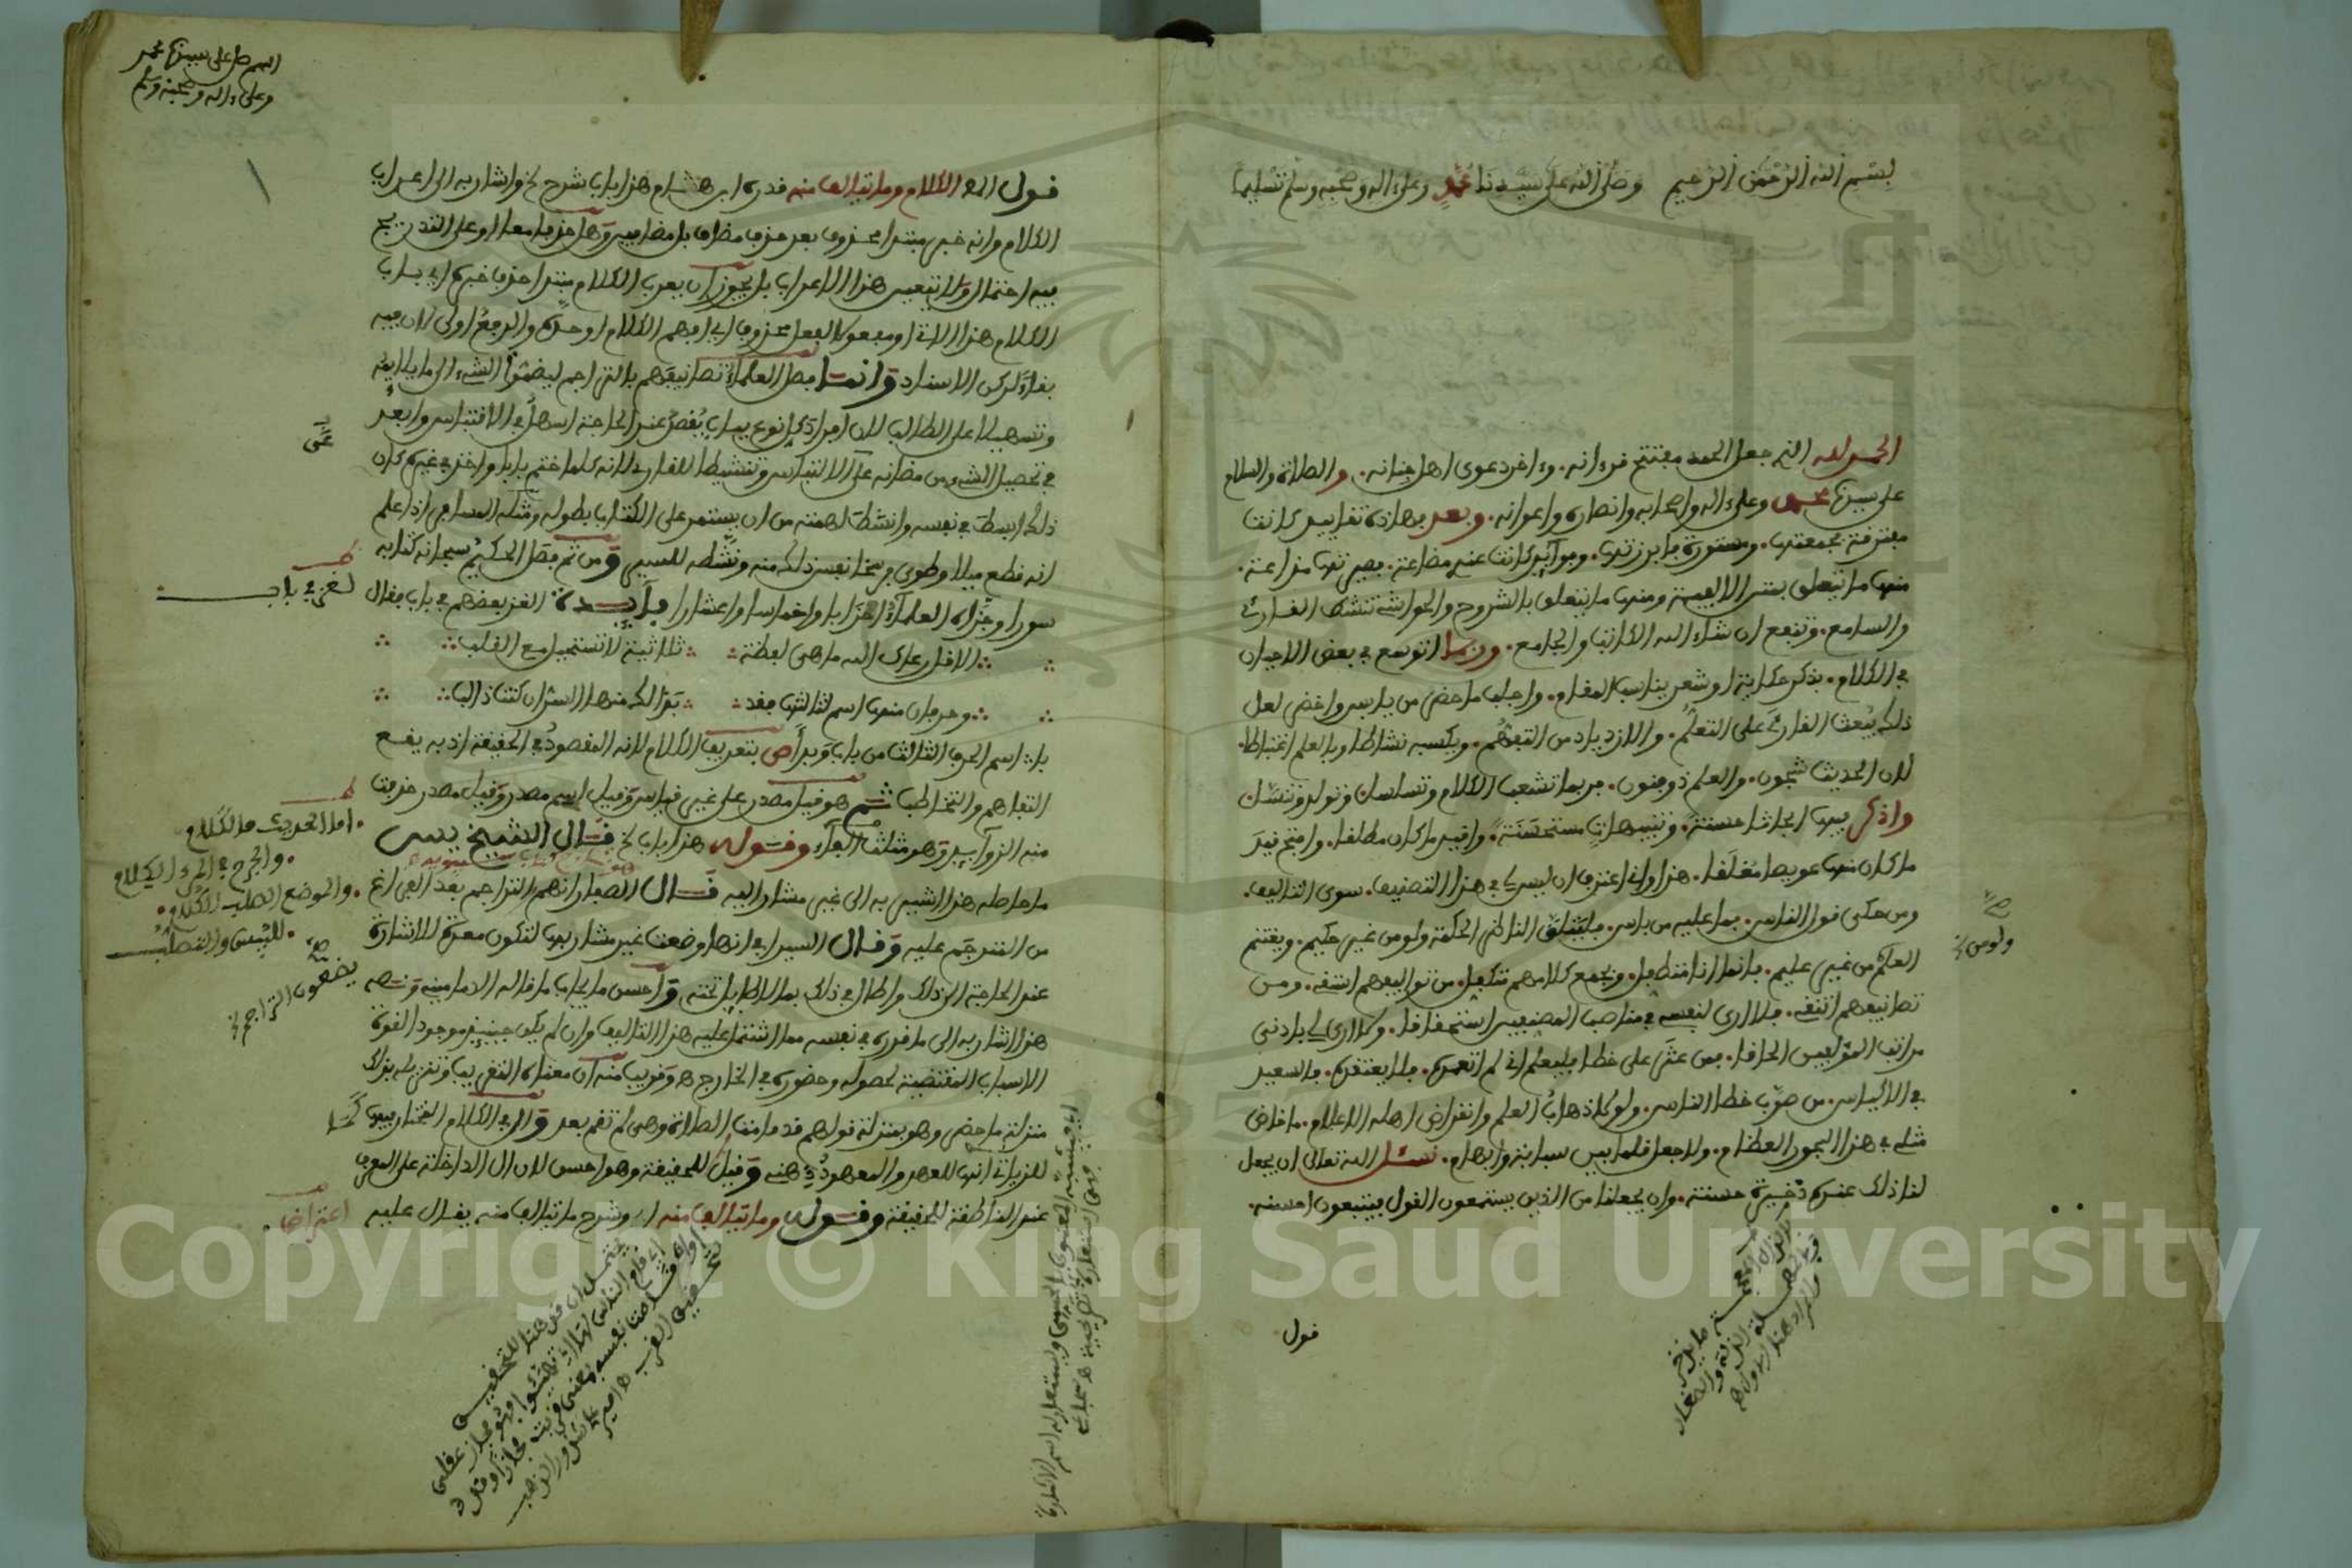 بسم الله الرحمن الرحيم وصلى الله على سيدنا محمد وعلى ءاله وصحبه وسلم تسليما
الحمد لله الذي جعل الحمد مفتتح قرءانه. وءاخر دعوى اهل جنانه. والصلاة والسلام
على سيدنا محمد وعلى ءاله واصحابه وانصاره واعوانه. وبعد فهاذه تقاييد كانت
مفترقة فجمعتها. ومستورة فابرزتها. وفوآئد كانت عندي مضاعة. فصيرتها مذاعة.
منها ما يتعلق بمتن الالفية ومنها ما يتعلق بالشروح والحواشي تنشط القارئ
والسامع. وتنفع ان شاء الله الكاتب والجامع. وربما اتوسع في بعض الاحيان
في الكلام. بذكر حكاية او شعر يناسب المقام. واجلب ماحض من يابس واخضر لعل
ذلك يبعث القارئ على التعلم. والازدياد من التفهم. ويكسبه نشاطا وبالعلم اغتباطا.
لان الحديث شجون. والعلم ذو فنون. فربما تشعب الكلام وتسلسل وتولد وتنسل
واذكر فيها ابحاثا حسنة. وتنبيهات مستحسنة. واقيد ما كان مطلقا. وافتح قيد
ما كان منها عويصا مغلقا. هذا واني اعترف ان ليس لي في هذا التصنيف. سوى التاليف.
ومن حكى قول الناس. فما عليه من باس. فليتلق الناظر الحكمة ولو من غير حكيم. ويغتنم
العلم من غير عليم. فانما انا متطفل. وبجمع كلامهم متكفل. من تواليفهم اشفه. ومن
تصانيفهم انتقه. فلا ارى لنفسي في مناصب المصنفين استحقاقا. ولا ارى لي بادنى
مراتب المؤلفين الحاقا. فمن عثر على خطا فليعلم اني لم اتعمده. فلا يعتقده. فالسعيد
في الاكياس. من صوب خطا الناس. ولولا ذهاب العلم وانقراض اهله الاعلام. ما خاض
مثلي في هذا البحور العظام. ولا جعل قلما بين سبابة وابهام. نسئل الله تعالى ان يجعل
لنا ذلك عنده ذخيرة حسنة. وان يجعلنا من الذين يستمعون القول فيتبعون احسنه.
ولو من
قول
اللهم صل على سيدنا محمد
وعلى ءاله وصحبه وسلم
قول الم الكلام وما يتالف منه قدره ابن هشام هذا باب شرح لخ واشار به الى اعراب
الكلام وانه خبر مبتدا محذوف بعد حذف مضاف بل مضافين وهل حذفا معا او على التدريج
فيه احتمال ولا يتعين هذا الاعراب بل يجوز ان يعرب الكلام مبتدا حذف خبره اي باب
الكلام هذا الاتي او مفعولا لفعل محذوف اي افهم الكلام او خذه والرفع اولى لان فيه
بقاء ركن الاسناد وانما فصل العلماء تصانيفهم بالتراجم ليضموا الشيء الى ما يلايمه
وتسهيلا على الطالب لان افراد كل نوع بباب يقصد عند الحاجة اسهل في الاقتباس وابعد
في تحصيل الشيء من مظانه عن الالتباس وتنشيطا للقارئ لانه كلما ختم بابا واخذ في غيره كان
ذلك ابسط في نفسه وانشط لهمته من ان يستمر على الكتاب بطوله ومثله المسافر اذا علم
انه قطع ميلا وطوى فرسخا نفس ذلك منه ونشطه للسير ومن ثم فصل الحكيم سبحانه كتابه
سورا وجزاه العلماء احزابا واخماسا واعشارا فآئدة الغز بعضهم في باب فقال
الا قل رعاك الله ما هي لفظة ثلاثية لا تستحيل مع القلب
وحرفان منها اسم لثالثها فقد بدا لك منها السر ان كنت ذا لب
با اسم الحرف الثالث من باب وبدأ ص بتعريف الكلام لانه المقصود في الحقيقة اذ به يقع
التفاهم والتخاطب ثم هو قيل مصدر على غير قياس وقيل اسم مصدر وقيل مصدر حذفت
منه الزوآئد وهو مثلث الفاء وقوله هذا باب لخ قال الشيخ يس
ما حاصله هذا اشير به الى غير مشار اليه قال الصفار انهم التراجم بعد الفراغ
من المترجم عليه وقال السيرافي انها وضعت غير مشار بها لتكون معدة للاشارة
عند الحاجة الى ذلك واطال في ذلك بما لا طايل تحته واحسن ما يجاب ما قاله الدماميني ونصه
هذا اشار به الى ما قدره في نفسه مما اشتمل عليه هذا التاليف وان لم يكن حينئذ موجودا لقوة
الاسباب المقتضية لحصوله وحضوره في الخارج ه وقريب منه ان معناه التقريب وتنزيله بذلك
منزلة ما حضر وهو بمنزلة قولهم قد قامت الصلاة وهي لم تقم بعد وال في الكلام المختار فيها كما
للزياتي انها للعهد والمعهود ذهنه وقيل للحقيقة وهو احسن لان ال الداخلة على المعرف
عند المناطقة للحقيقة وقوله وما يتالف منه اي وشرح ما يتالف منه يقال عليه
لغز في باب
اما الحديث فالكلام
والجرح في المرء الكلام
والموضع الصلب الكلام
لليبس والتصلب
يضعون التراجم
اعتراض
Copyright © King Saud University
1957